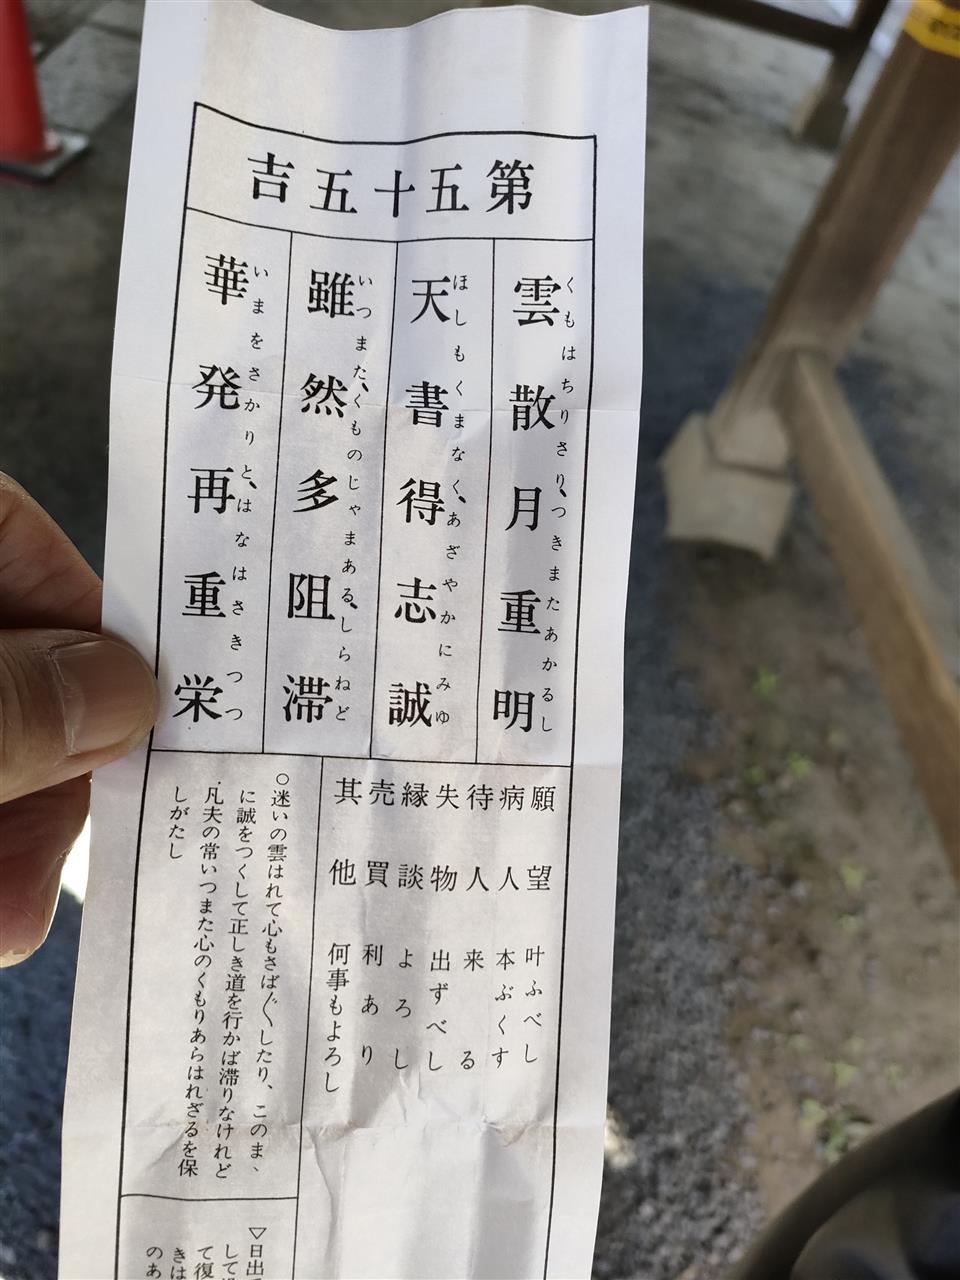 第五十五吉
雲散月重明
くもはちりさり、つきまたあかるし
天書得志誠
ほしもくまなく、あざやかにみゆ
雖然多阻滞
いつまた、くものじゃまある、しらねど
華発再重栄
いまをさかりと、はなはさきつつ
願望 叶ふべし
病人 本ぶくす
待人 来る
失物 出ずべし
縁談 よろし
売買 利あり
其他 何事もよろし
○迷いの雲はれて心もさば〱したり、このまゝ
に誠をつくして正しき道を行かば滞りなけれど
凡夫の常いつまた心のくもりあらはれざるを保
しがたし
▽日出
して
て復
きは
のあ